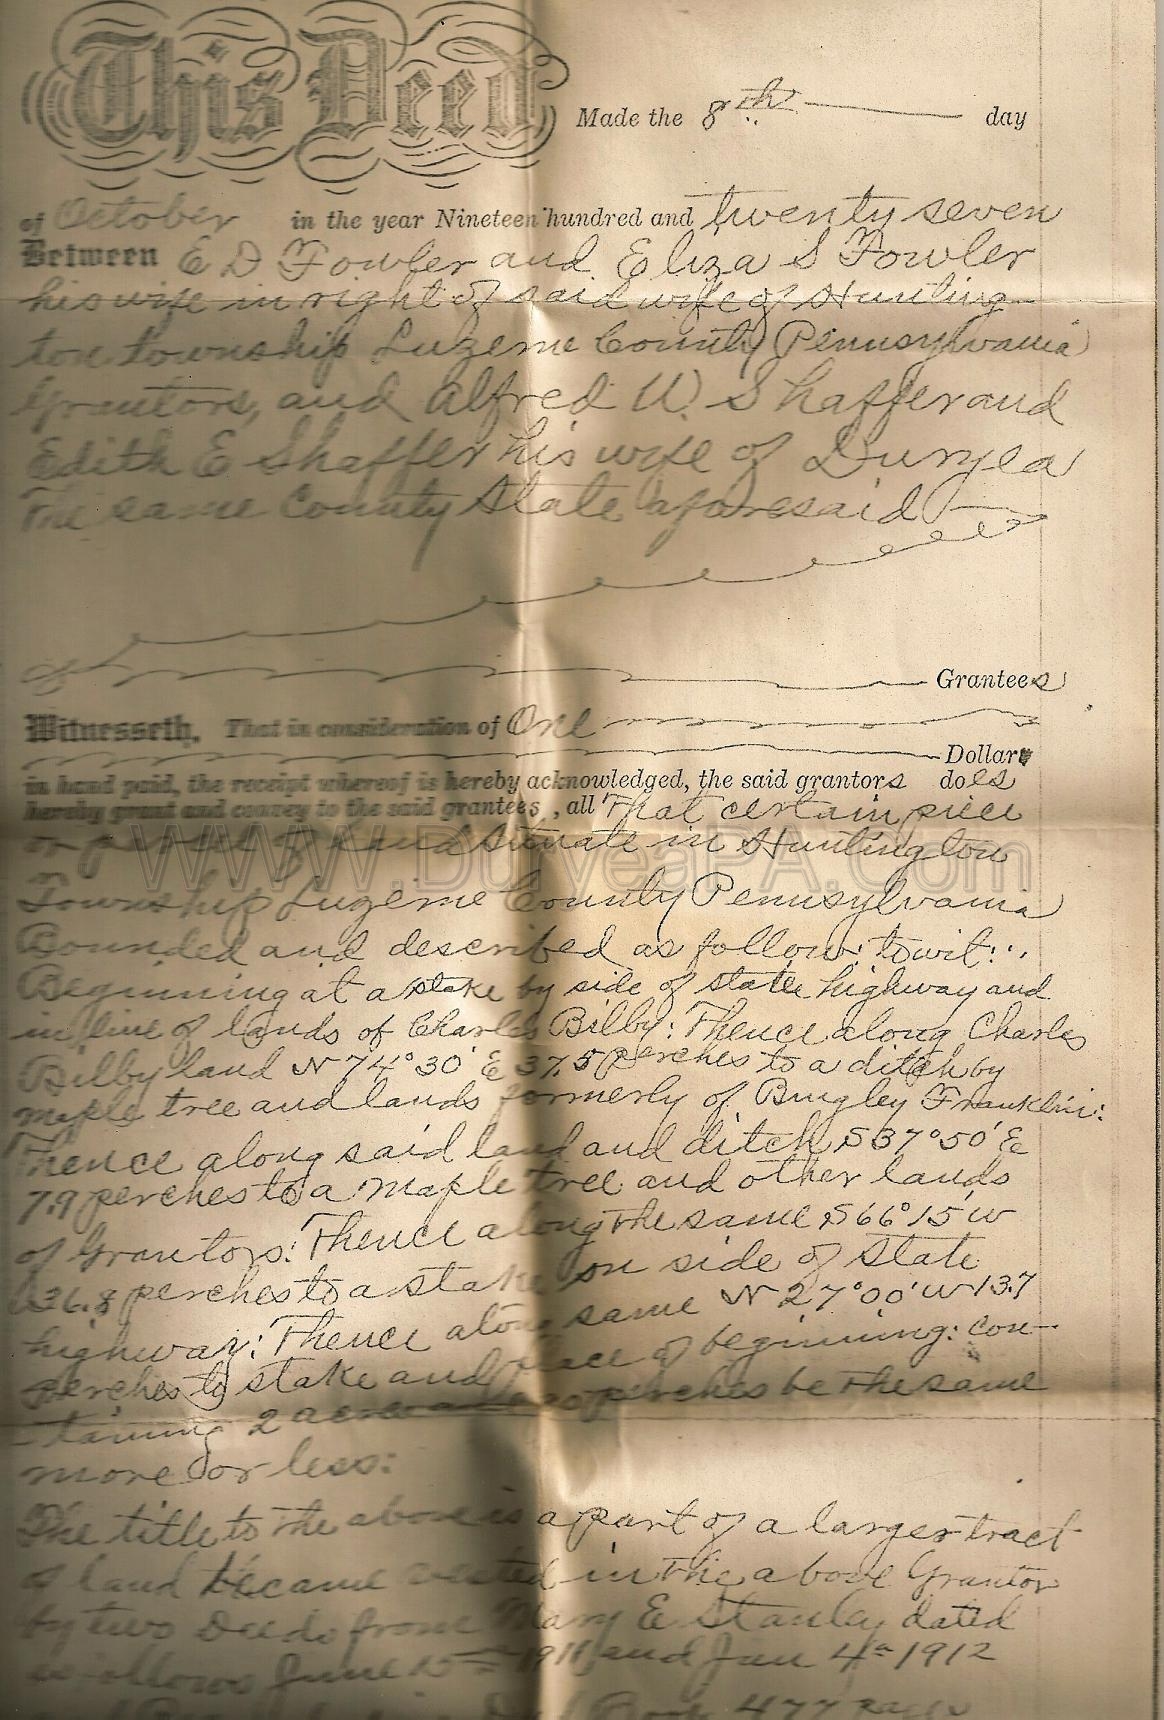 This Deed Made the 8th day
of October in the year Nineteen hundred and twenty seven
Between E D Fowler and Eliza S Fowler
his wife in right of said wife of Hunting-
ton township Luzerne County Pennsylvania
Grantors, and Alfred W. Shaffer and
Edith E Shaffer his wife of Duryea
The same County State aforesaid
of Grantees
Witnesseth, That in consideration of One
Dollar
in hand paid, the receipt whereof is hereby acknowledged, the said grantors does
hereby grant and convey to the said grantees, all That certain piece
or parcel of land situate in Huntington
www.DuryeaPA.com
Township Luzerne County Pennsylvania
Bounded and described as follow: to wit:
Beginning at a stake by side of state highway and
in line of lands of Charles Bilby: Thence along Charles
Bilby land N 74° 30' E 37.5 perches to a ditch by
maple tree and lands formerly of Bingley Franklin:
Thence along said land and ditch S 37° 50' E
7.9 perches to a maple tree and other lands
of Grantors: Thence along the same S 66° 15' W
36.8 perches to a stake on side of State
highway: Thence along same N 27° 00' W 13.7
perches to stake and place of beginning: con-
-taining 2 acres and perches be the same
more or less:
The title to the above is a part of a larger tract
of land became vested in the above Grantor
by two Deeds from Mary E Stanley dated
as follows June 15th 1911 and Jan 4th 1912
Deed Book 477 page